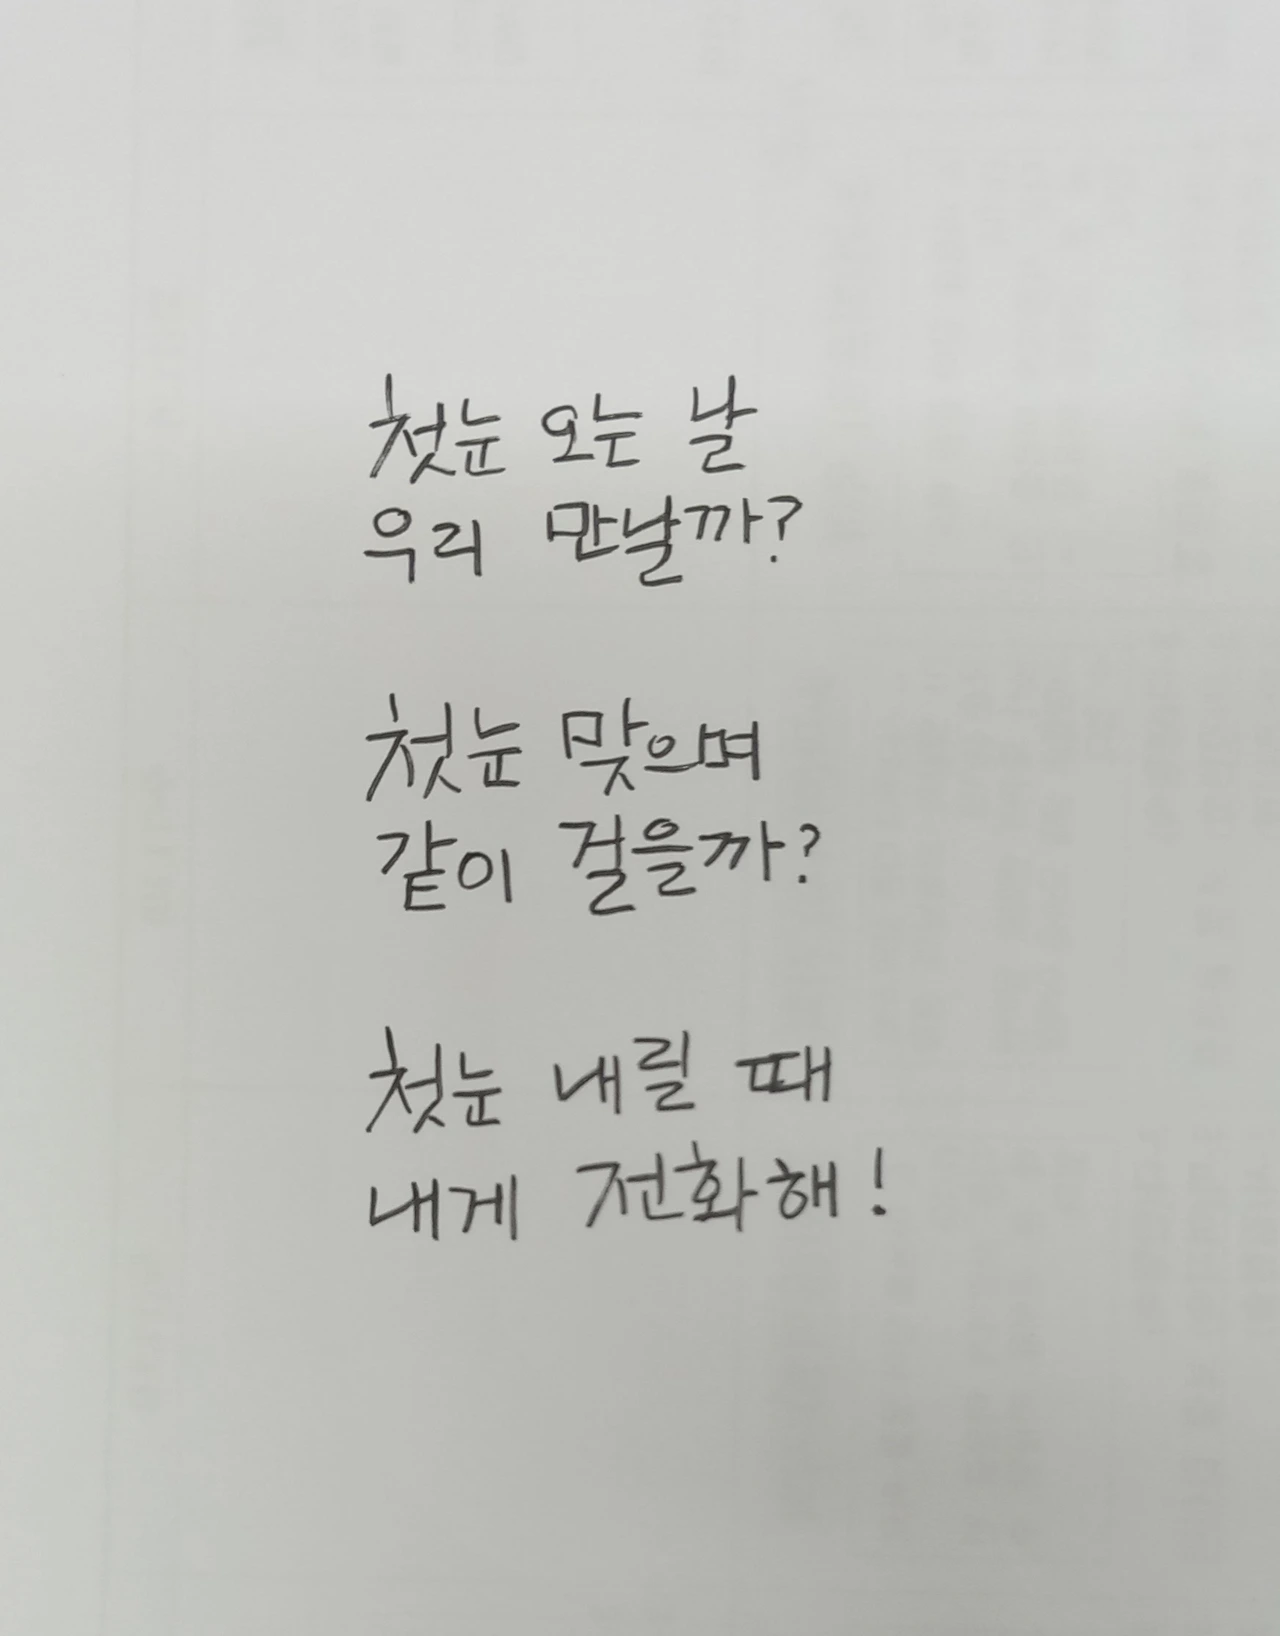 첫눈 오는 날
우리 만날까?
첫눈 맞으며
같이 걸을까?
첫눈 내릴 때
내게 전화해!